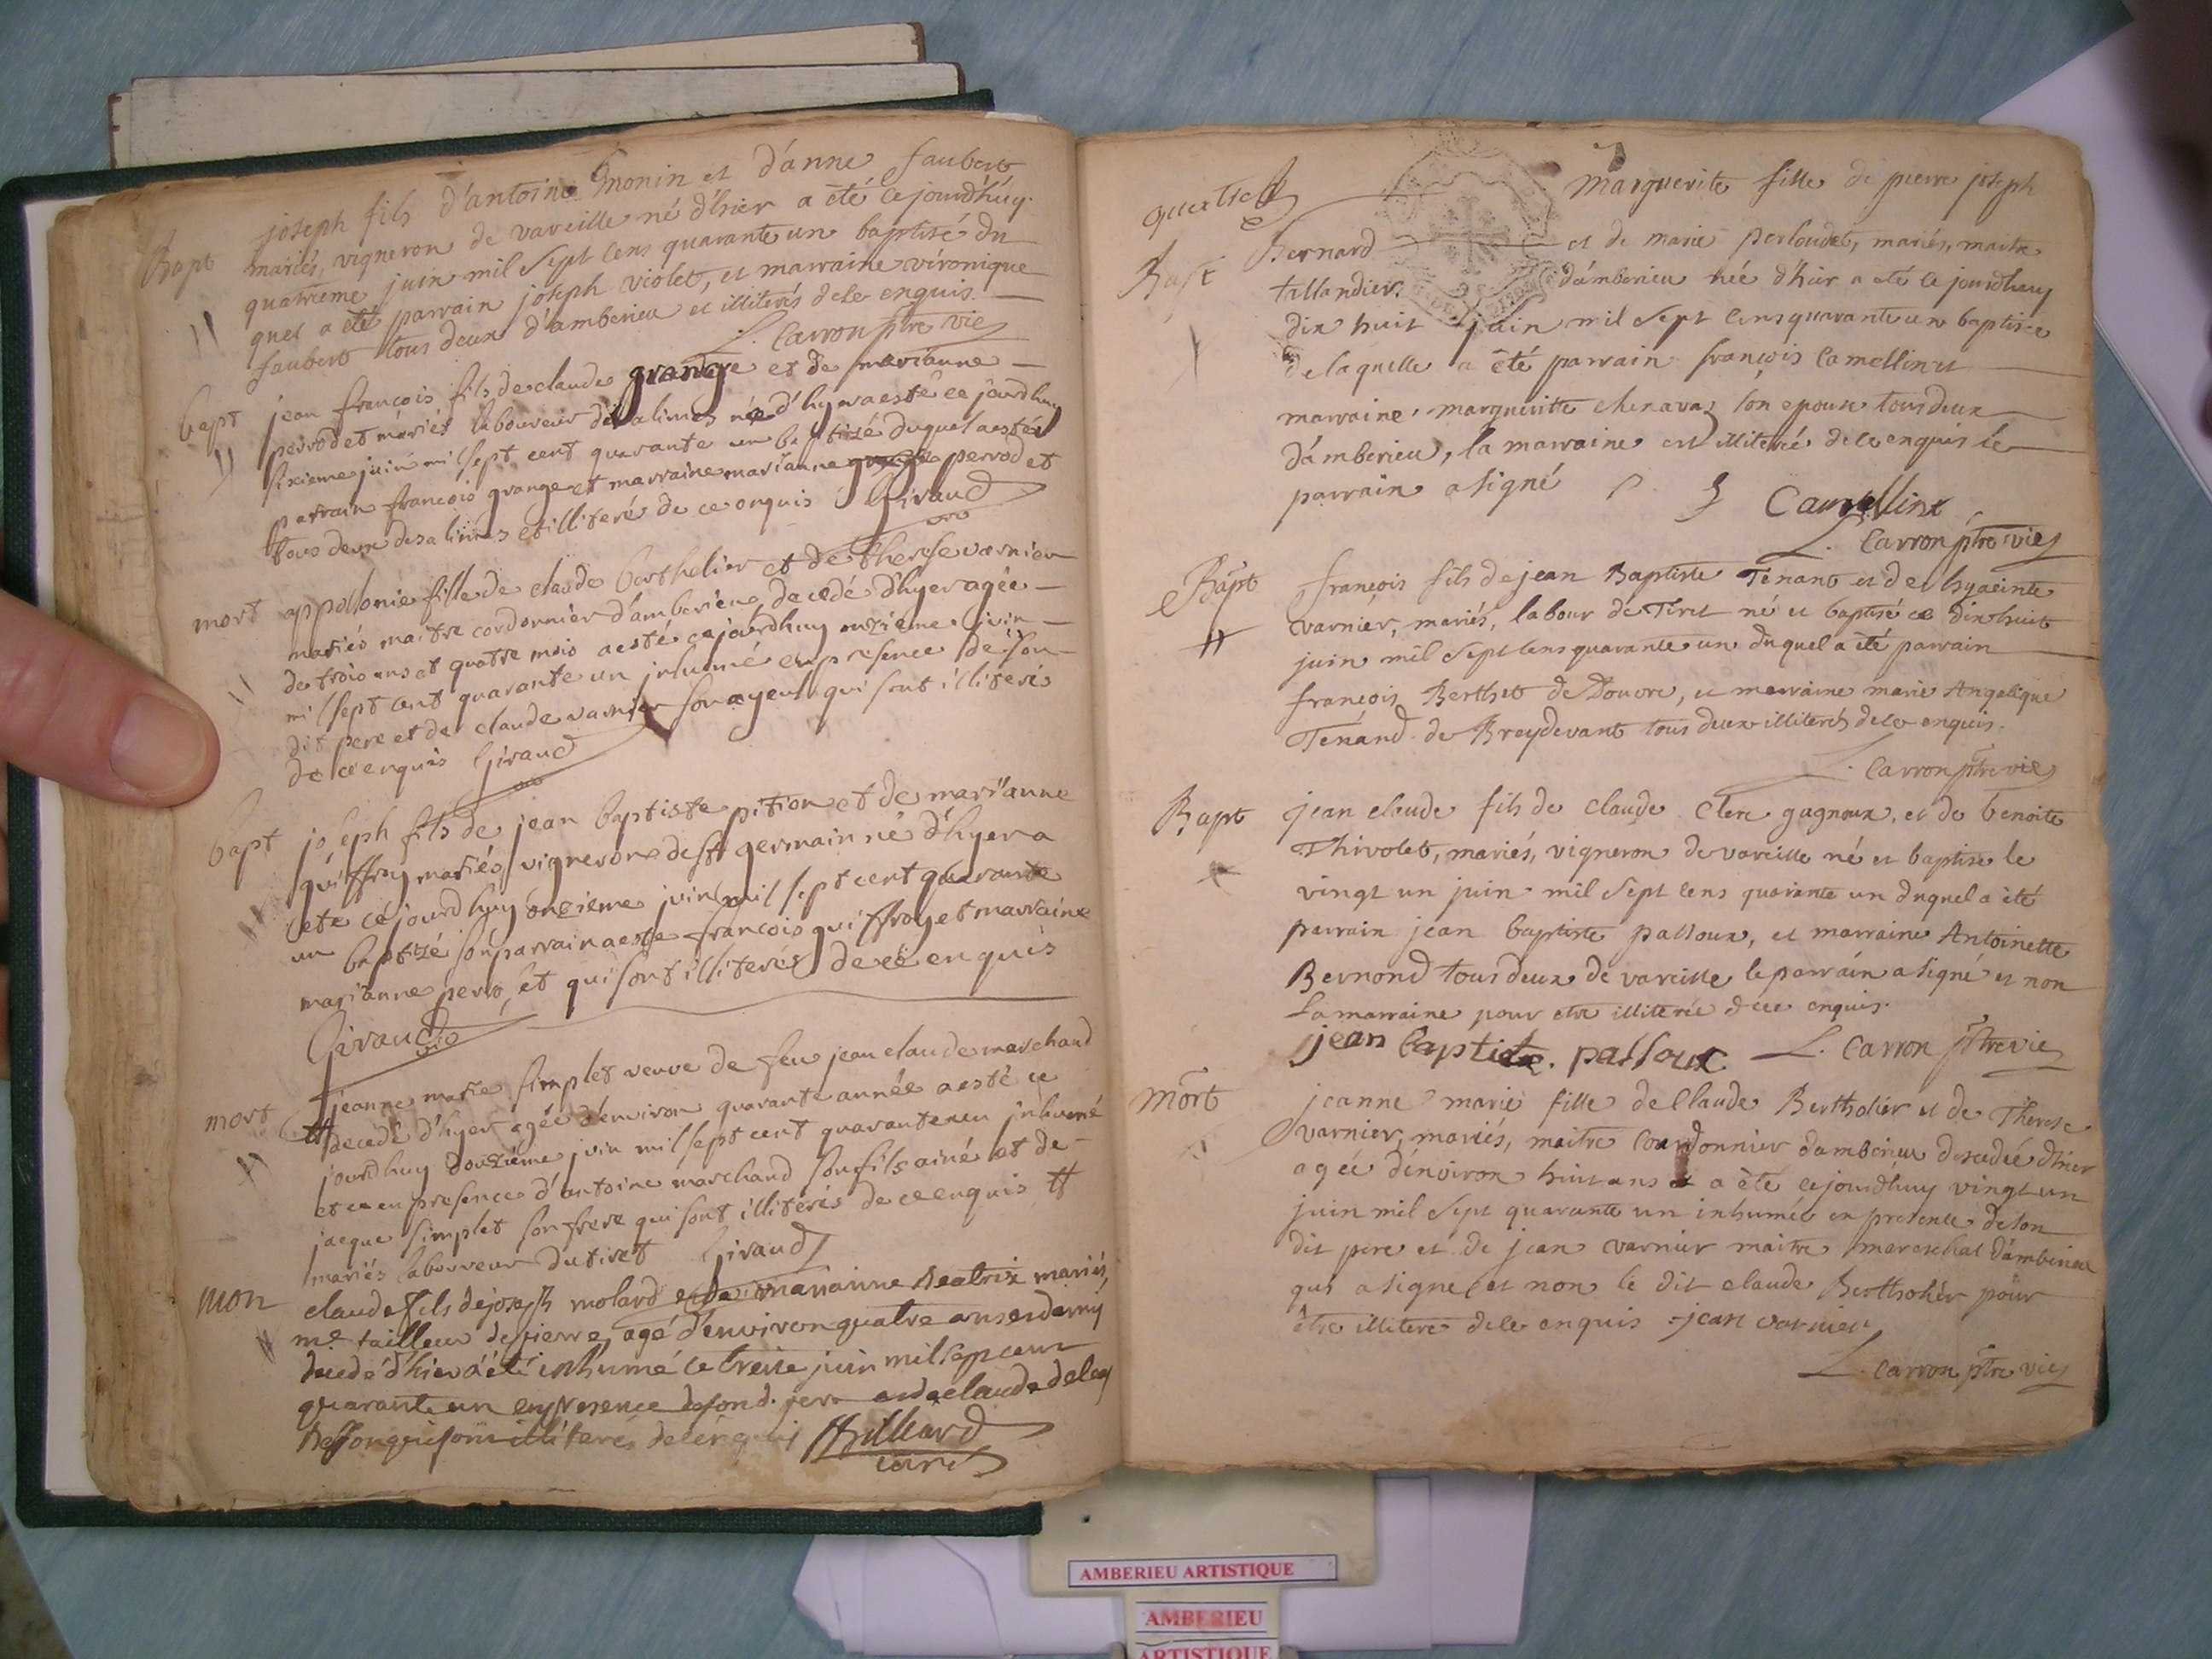 Bapt
joseph fils d'antoine monin et d'anne faubert
mariés, vigneron de vareille né d'hier a été ce jourdhuy
quatrieme juin mil sept cens quarante un baptisé du
quel a été parrain joseph violet, et marraine véronique
faubert tous deux d'amberieu et illiterés de ce enquis.
L. Carron ptre vic
bapt
jean francois fils de claude grange et de marianne
perrodet mariés laboureur des alimes né d'hyer a esté ce jourdhuy
sixieme juin mil sept cent quarante un baptizé duquel a esté
parrain francois grange et marraine marianne perrodet
tous deux des alimes et illiteré de ce enquis Giraud
vic
mort
appollonie fille de claude berthelier et de therese varnier
mariés maitre cordonnier d'amberieu decedé d'hyer agée
de trois ans et quatre mois a esté ce jourdhuy onzieme juin
mil sept cent quarante un inhumé en presence de son
dit pere et de claude varnier son ayeul qui sont illiterés
de ce enquis Giraud
vic
bapt
joseph fils de jean baptiste pition et de marianne
quiffray mariés vigneron de st germain né d'hyer a
ete ce jourdhuy onzieme juin mil sept cent quarante
un baptizé son parrain a este francois quiffray et marraine
marianne perro et qui sont illiterés de ce enquis
Giraud
vic
mort
jeanne marie simplet veuve de feu jean claude marchand
# decedé d'hyer agée d'environ quarante année a esté ce
jourdhuy douzieme juin mil sept cent quarante un inhumé
et ce en presence d'antoine marchand son fils ainé et de
jacque simplet son frere qui sont illiterés de ce enquis #
mariés laboureur du tiret Giraud
mort
claude fils de joseph molard et de marianne Beatrix mariés,
me tailleur de pierre, agé d'environ quatre ans et demy
decedé d'hier a été inhumé le treize juin mil sept cent
quarante un en presence de son d. pere et de claude
Besson qui sont illiterés de ce enquis
curé
Bapt
Marguerite fille de pierre joseph
Bernard et de marie perloudet, mariés, maitre
tallandier d'amberieu née d'hier a eté ce jourdhuy
dix huit juin mil sept cens quarante un baptisée
de laquelle a été parrain françois Camellin et
marraine marguerite chenavaz son epouse tous deux
d'amberieu, la marraine est illiterée de ce enquis le
parrain a signé
Camellin
L. Carron ptre vic
Bapt
françois fils de jean Baptiste Tenant et de hyacinte
varnier, mariés, labour de Tiret né et baptisé ce dix huit
juin mil sept cens quarante un duquel a été parrain
françois Berthet de Douvre, et marraine marie Angelique
Ténand de Breydevant tous deux illiterés de ce enquis.
L. Carron ptre vic
Bapt
jean claude fils de claude Clerc gagneux, et de benoite
Thivolet, mariés, vigneron de vareille né et baptisé le
vingt un juin mil sept cens quarante un duquel a été
parrain jean baptiste palloux, et marraine Antoinette
Bernond tous deux de vareille le parrain a signé et non
la marraine pour etre illiterée de ce enquis.
jean baptiste. palloux L. Carron ptre vic
Mort
jeanne marie fille de Claude Berthelier et de Therese
varnier, mariés, maitre Courdonnier d'amberieu decedée d'hier
agée d'énviron huit ans a été ce jourdhuy vingt un
juin mil sept quarante un inhumée en presence de son
dit pere et de jean varnier maitre mareschal d'amberieu
qui a signé et non le dit claude Berthelier pour
être illiteré de ce enquis jean varnier
L. Carron ptre vic
AMBERIEU ARTISTIQUE
AMBERIEU
ARTISTIQUE